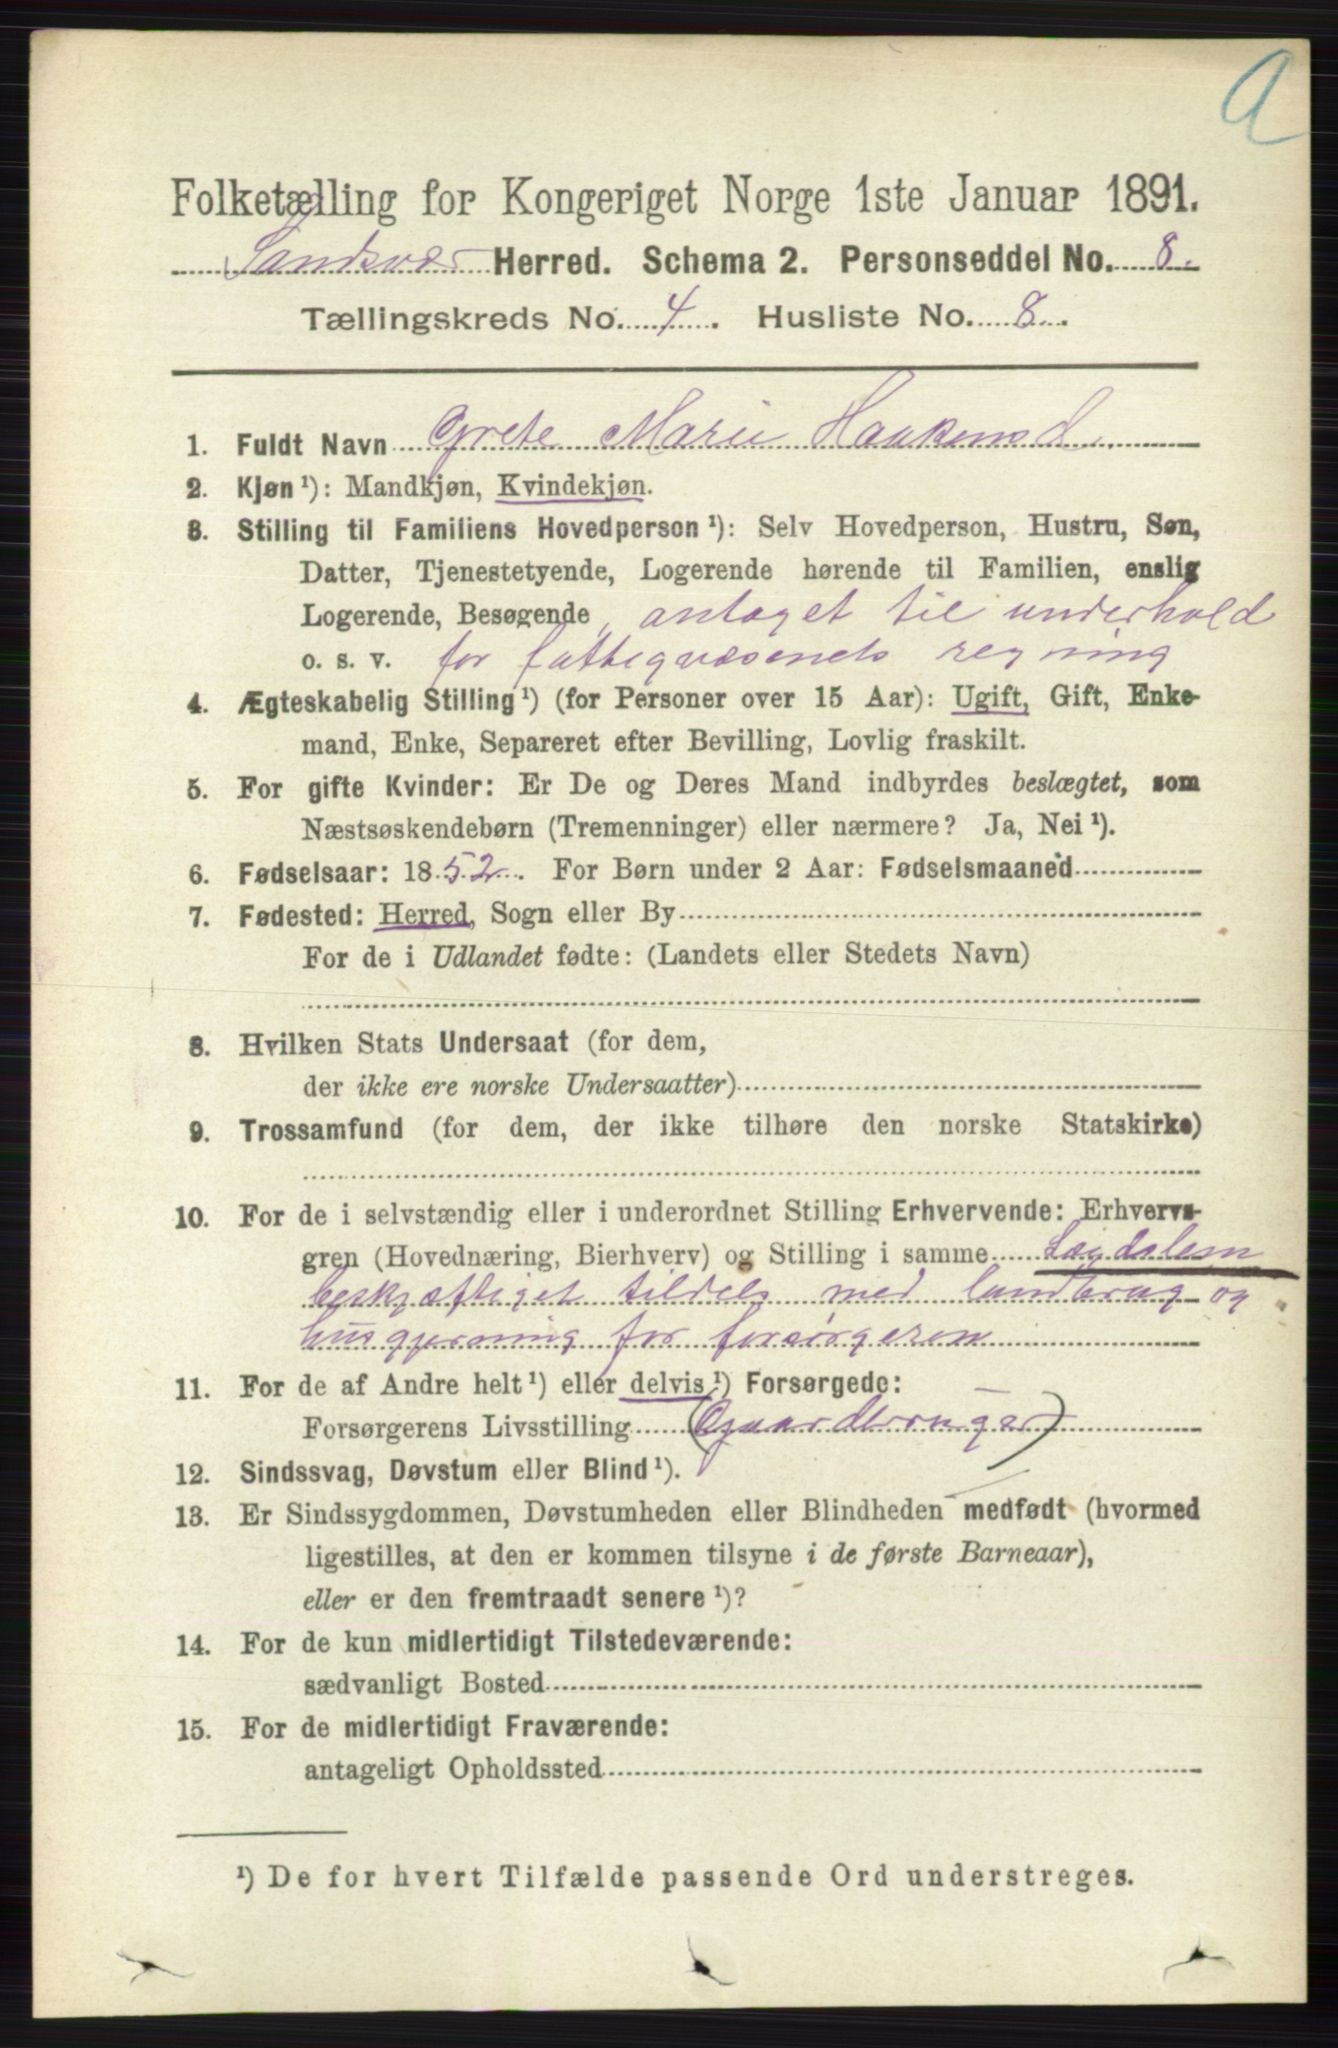 A
Folketælling for Kongeriget Norge 1ste Januar 1891.
Sandsvær Herred. Schema 2. Personseddel No. 8.
Tællingskreds No. 4. Husliste No. 8.
1. Fuldt Navn Grete Marie
2. Kjøn ¹): Mandkjøn, Kvindekjøn.
3. Stilling til Familiens Hovedperson ¹): Selv Hovedperson, Hustru, Søn,
Datter, Tjenestetyende, Logerende hørende til Familien, enslig
Logerende, Besøgende, antaget til underhold
o. s. v. for fattigvæsenets regning
4. Ægteskabelig Stilling ¹) (for Personer over 15 Aar): Ugift, Gift, Enke-
mand, Enke, Separeret efter Bevilling, Lovlig fraskilt.
5. For gifte Kvinder: Er De og Deres Mand indbyrdes beslægtet, som
Næstsøskendebørn (Tremenninger) eller nærmere? Ja, Nei ¹).
6. Fødselsaar: 1852. For Børn under 2 Aar: Fødselsmaaned
7. Fødested: Herred, Sogn eller By
For de i Udlandet fødte: (Landets eller Stedets Navn)
8. Hvilken Stats Undersaat (for dem,
der ikke ere norske Undersaatter)
9. Trossamfund (for dem, der ikke tilhøre den norske Statskirke)
10. For de i selvstændig eller i underordnet Stilling Erhvervende: Erhvervs-
gren (Hovednæring, Bierhverv) og Stilling i samme Lægdslem
beskjæftiget tildels med landbrug og
husgjerning for forsørgeren
11. For de af Andre helt ¹) eller delvis ¹) Forsørgede:
Forsørgerens Livsstilling (Gaardbruger)
12. Sindssvag, Døvstum eller Blind ¹).
13. Er Sindssygdommen, Døvstumheden eller Blindheden medfødt (hvormed
ligestilles, at den er kommen tilsyne i de første Barneaar),
eller er den fremtraadt senere ¹)?
14. For de kun midlertidigt Tilstedeværende:
sædvanligt Bosted
15. For de midlertidigt Fraværende:
antageligt Opholdssted
¹) De for hvert Tilfælde passende Ord understreges.